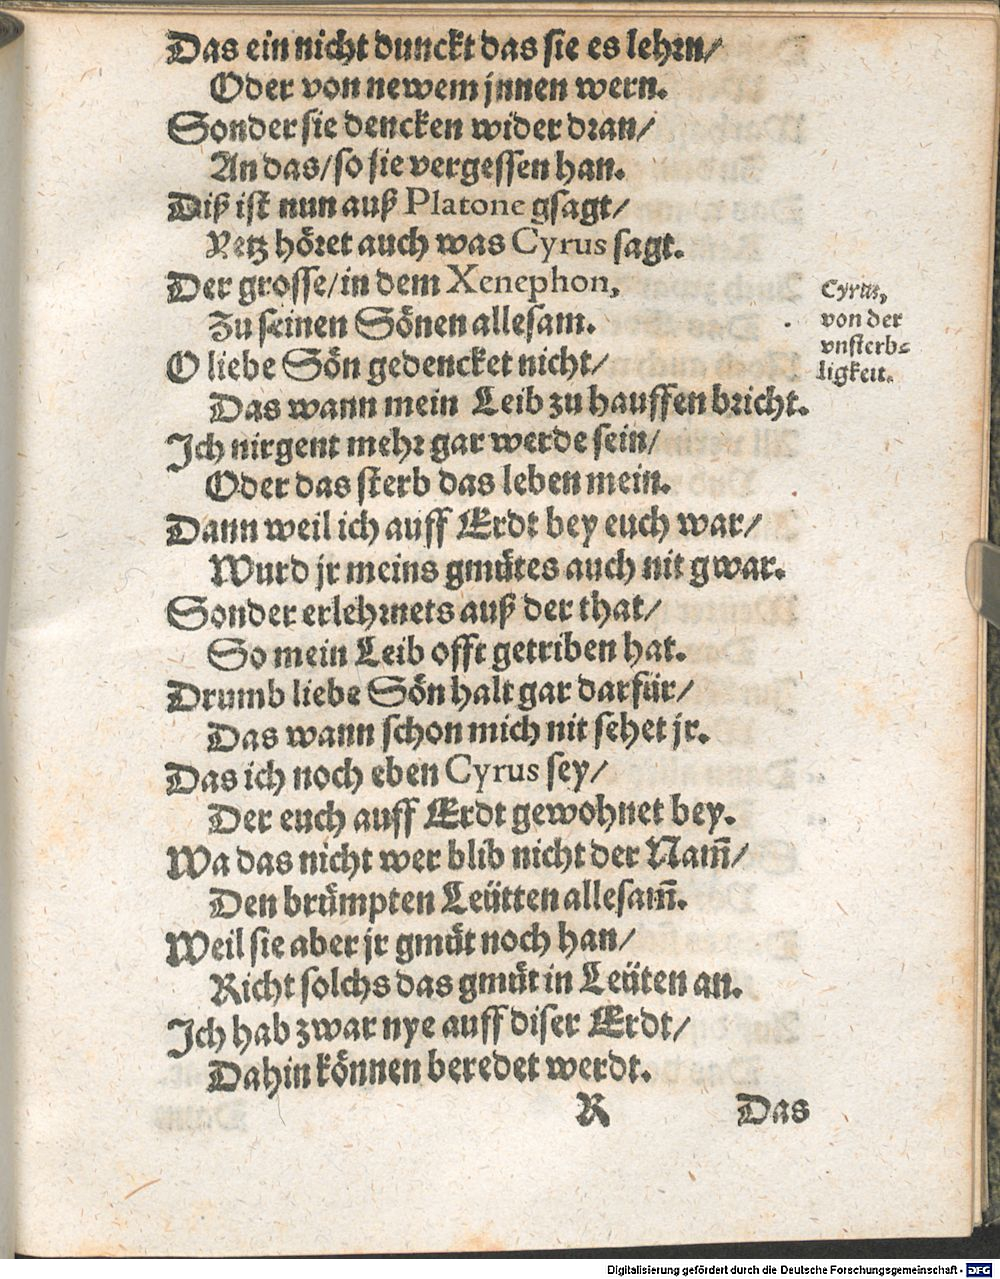 Das ein nicht dunckt das sie es lehrn/
Oder von newem jnnen wern.
Sonder sie dencken wider dran/
An das/so sie vergessen han.
Diß ist nun auß Platone gsagt/
Yetz höret auch was Cyrus sagt.
Der grosse/in dem Xenephon,
Zu seinen Sönen allesam.
O liebe Sön gedencket nicht/
Das wann mein Leib zu hauffen bricht.
Ich nirgent mehr gar werde sein/
Oder das sterb das leben mein.
Dann weil ich auff Erdt bey euch war/
Wurd jr meins gmuͤtes auch nit gwar.
Sonder erlehrnets auß der that/
So mein Leib offt getriben hat.
Drumb liebe Sön halt gar darfür/
Das wann schon mich nit sehet jr.
Das ich noch eben Cyrus sey/
Der euch auff Erdt gewohnet bey.
Wa das nicht wer blib nicht der Nam̄/
Den bruͤmpten Leütten allesam̄.
Weil sie aber jr gmuͤt noch han/
Richt solchs das gmuͤt in Leüten an.
Ich hab zwar nye auff diser Erdt/
Dahin können beredet werdt.
Cyrus,
von der
vnsterb-
ligkeit.
R
Das
Digitalisierung gefördert durch die Deutsche Forschungsgemeinschaft - DFG